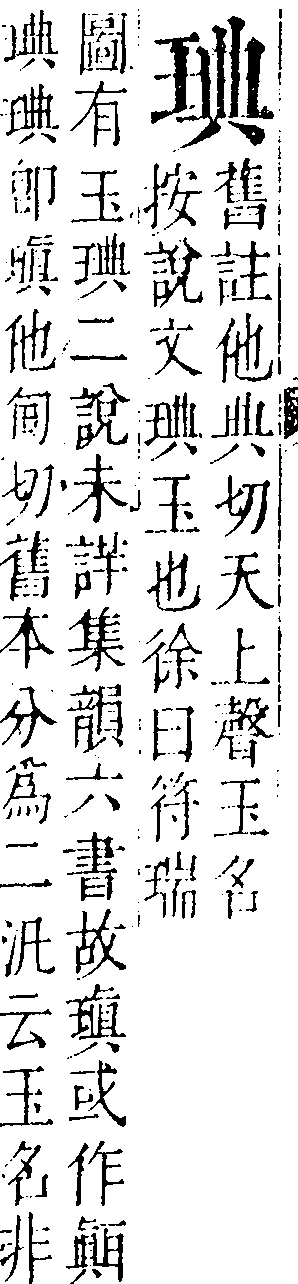 琠
舊註他典切天上聲玉名
按說文琠玉也徐曰符瑞
圖有玉琠二說未詳集韻六書故瑱或作
琠琠卽瑱他甸切舊本分爲二汎云玉名非